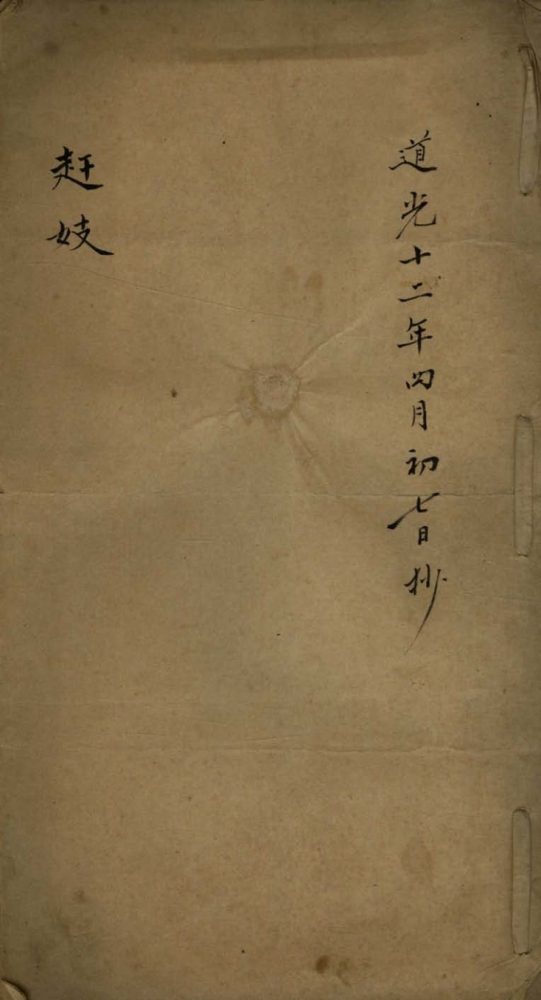 道光十二年四月初七日抄
赶妓